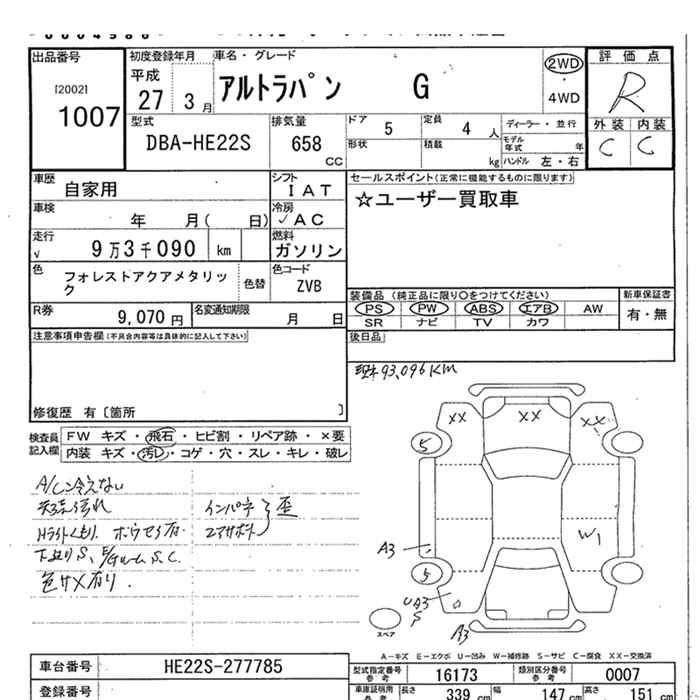 出品番号
[2002]
1007
初度登録年月
平成
27 3 月
車名・グレード
アルトラパン G
2WD
4WD
評価点
R
外装 内装
C C
型式
DBA-HE22S
排気量
658
CC
ドア 5 定員 4 人
形状 積載 kg
ディーラー・並行
モデル年式 年
ハンドル 左・右
車歴 自家用
シフト
IAT
車検 年 月( 日)
冷房
✓AC
走行
√ 9万3千090 km
燃料
ガソリン
色 フォレストアクアメタリック
色替
色コード
ZVB
R券 9,070円
名変通知期限 月 日
セールスポイント(正常に機能するものに限ります)
☆ユーザー買取車
装備品 (純正品に限り○をつけてください)
PS PW ABS エアB AW
SR ナビ TV カワ
新車保証書
有・無
後日品
注意事項申告欄(不具合内容等は具体的に記入して下さい)
修復歴 有〔箇所 〕
現車93,096KM
検査員記入欄
FW キズ・飛石・ヒビ割・リペア跡・×要
内装 キズ・汚レ・コゲ・穴・スレ・キレ・破レ
A/C冷えない
Hライトくもり
下廻りS、E/GルームS.C.
色サメ有り.
インパネ
コアサポート
歪
XX XX XX
5
A3
W1
5
UA3
S
A3
スペア
A-キズ E-エクボ U-凹み W-補修跡 S-サビ C-腐食 XX-交換済
車台番号 HE22S-277785
登録番号
型式指定番号 参考 16173
類別区分番号 参考 0007
車庫証明用 参考
長さ 339 cm 幅 147 cm 高さ 151 cm